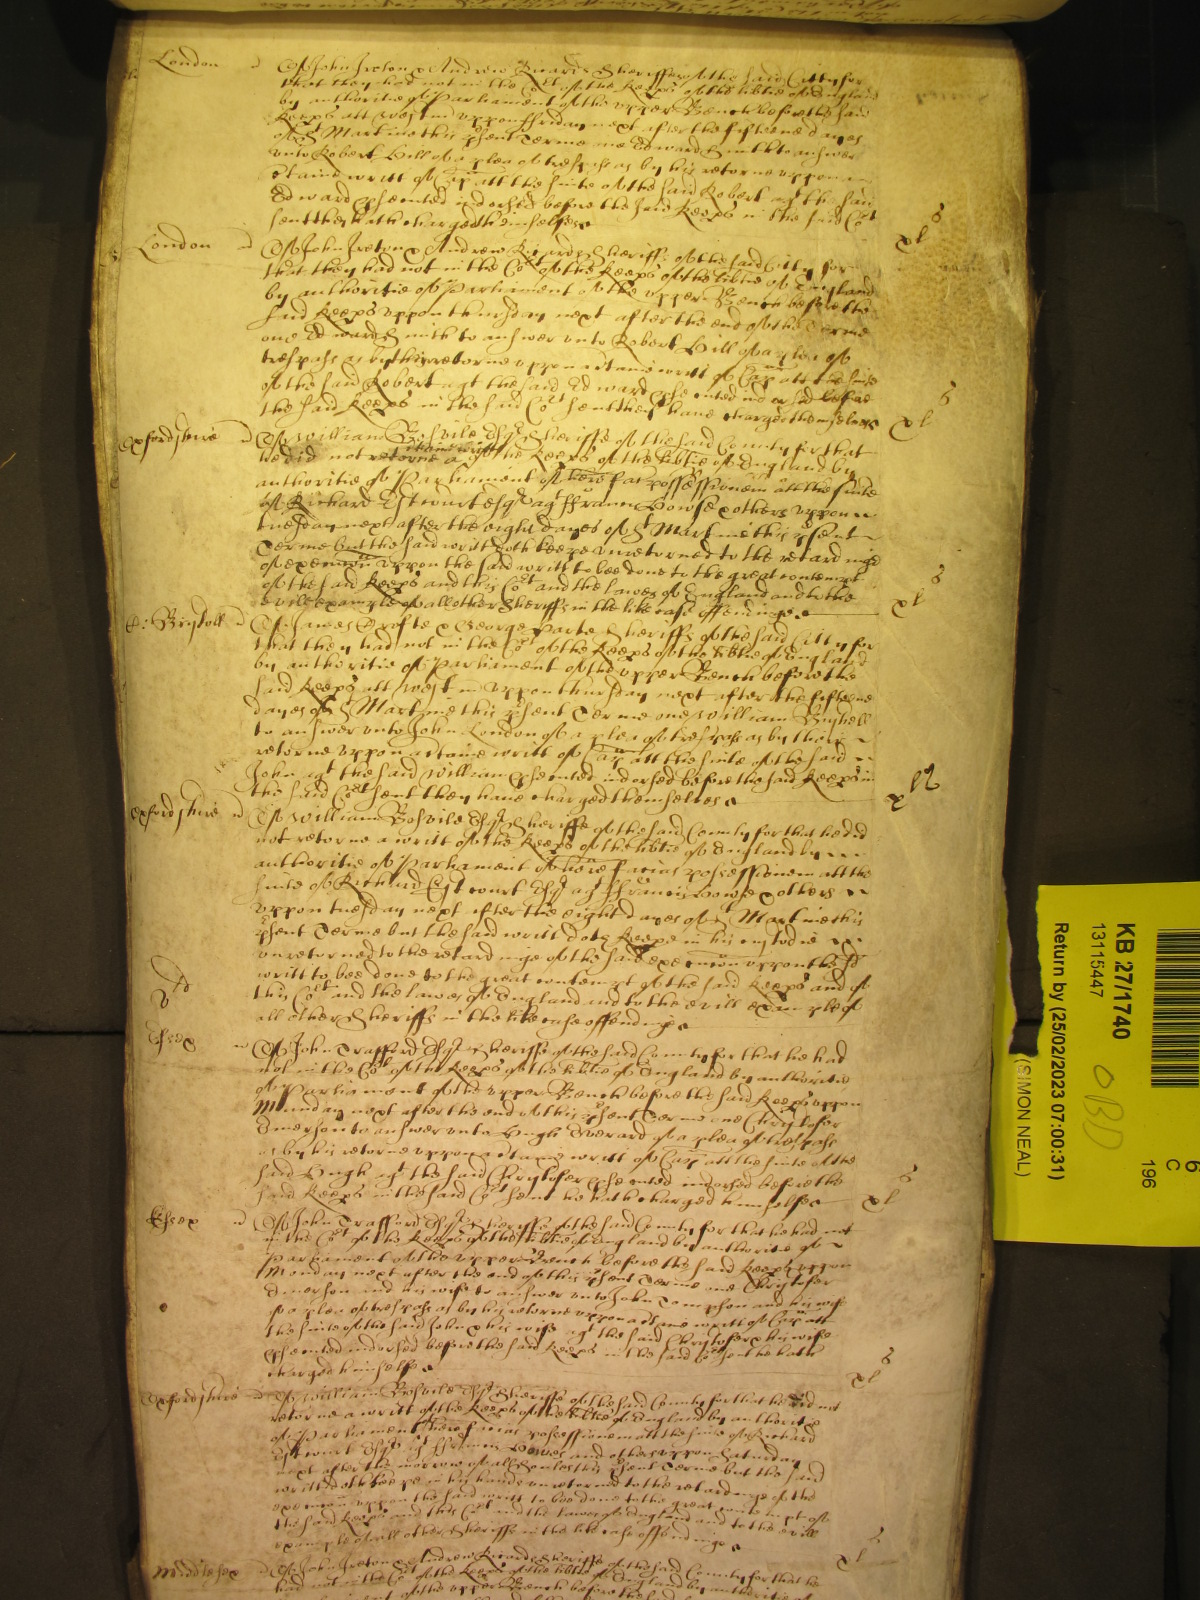 London Of John Ireton & Andrew Ricards Sheriffes of the said Citty for
that they had not in the Cot of the Keeps of the libtie of England
by authoritie of Parliament of the upper Bench before the said
Keeps att Westm uppon ffriday next after the fifteene dayes
of St Martine this psent Terme one Edward Smith to answer
unto Robert Hill of a plea of trespasse as by his retorne uppon a
certaine writt of Cap att the suite of the said Robert agt the said
Edward psented indorsed before the said Keeps in the said Cot
sent they hath charged themselves
xl s
London Of John Ireton & Andrew Ricards Sheriffs of the said Citty for
that they had not in the Cot of the Keeps of the libtie of England
by authoritie of Parliament of the upper Bench before the
said Keeps uppon thursday next after the end of the Terme
one Edward Smith to answer unto Robert Hill of a plea of
trespasse as by their retorne uppon a certaine writt of Cap att the suite
of the said Robert agt the said Edward psented indorsed before
the said Keeps in the said Cot sent they have charged themselves
xl s
Oxfordshire Of William Bosvile Esqr Sheriffe of the said County for that
he did not retorne a certaine writt of the Keeps of the libtie of England by
authoritie of Parliament of here facias possessionem att the suite
of Richard Estcourt Esqr agt ffrancis Bowse & others uppon
tuesday next after the eight dayes of St Martine this psent
Terme but the said writt doth keepe unretorned to the retardinge
of execucon uppon the said writt to bee done to the great contempt
of the said Keeps and this Cot and the lawes of England and to the
evill example of all other Sheriffs in the like case offendinge
xl s
C: Bristoll Of James Crofte & George Parte Sheriffs of the said Citty for
that they had not in the Cot of the Keeps of the libtie of England
by authoritie of Parliament of the upper Bench before the
said Keeps att Westm uppon thursday next after the fifteene
dayes of St Martine this psent Terme one William Bushell
to answer unto John London of a plea of trespasse as by their
retorne uppon a certaine writt of Cap att the suite of the said
John agt the said William psented indorsed before the said Keeps in
the said Cot sent they have charged themselves
xl s
Oxfordshire Of William Bosvile Esqr Sheriffe of the said County for that he did
not retorne a writt of the Keeps of the libtie of England by
authoritie of Parliament of here facias possessionem att the
suite of Richard Estcourt Esqr agt ffrancis Bowse & others
uppon tuesday next after the eight dayes of St Martine this
psent Terme but the said writt doth keepe in his custodie
unretorned to the retardinge of the said execucon uppon the sd
writt to bee done to the great contempt of the said Keeps and of
this Cot and the lawes of England and to the evill example of
all other Sheriffs in the like case offendinge
Essex Of John Trafford Esqr Sheriffe of the said County for that he had
not in the Cot of the Keeps of the libtie of England by authoritie
of Parliament of the upper Bench before the said Keeps uppon
Munday next after the end of this psent Terme one Christofer
Emerson to answer unto Hugh Everard of a plea of trespasse
as by his retorne uppon a certaine writt of Cap att the suite of the
said Hugh agt the said Christofer psented indorsed before the
said Keeps in the said Cot sent he hath charged himselfe
xl s
Essex Of John Trafford Esqr Sheriffe of the said County for that he had not
in the Cot of the Keeps of the libtie of England by authoritie of
Parliament of the upper Bench before the said Keeps uppon
Monday next after the end of this psent Terme one Christofer
Emerson and his wife to answer unto John Tompson and his wife
of a plea of trespasse as by his retorne uppon a certaine writt of Cap att
the suite of the said John & his wife agt the said Christofer & his wife
psented indorsed before the said Keeps in the said Cot sent he hath
charged himselfe
xl s
Oxfordshire Of William Bosvile Esqr Sheriffe of the said County for that he did not
retorne a writt of the Keeps of the libtie of England by authoritie
of Parliament of here facias possessionem att the suite of Richard
Estcourt Esqr agt ffrancis Bowse and others uppon Saturday
next after the morrow of all Soules this psent Terme but the said
writt doth keepe in his hands unretorned to the retardinge of the
execucon uppon the said writt to bee done to the great contempt of
the said Keeps and this Cot and the lawes of England and to the evill
example of all other Sheriffs in the like case offendinge
xl s
Middlesex Of John Ireton & Andrew Ricards Sheriffe of the said County for that he
had not in the Cot of the Keeps of the libtie of England by authoritie of
Parliament of the upper Bench before the
KB 27/1740
13115447
Return by (25/02/2023 07:00:31)
(SIMON NEAL)
OBD
6
C
196